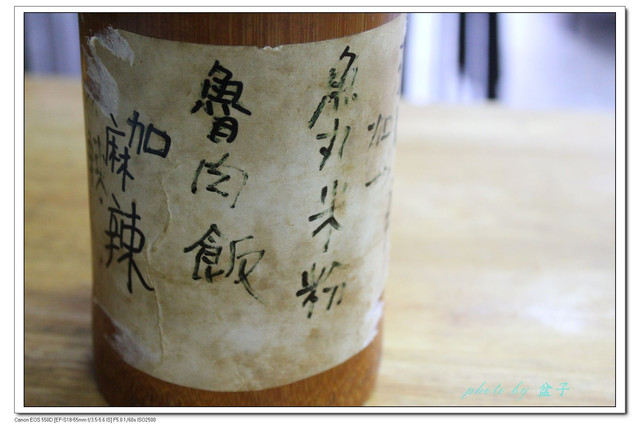 魚丸米粉
魯肉飯
加
麻辣
photo by 盒子
Canon EOS 550D [EF-S18-55mm f/3.5-5.6 IS] F5.0 1/60s ISO2500